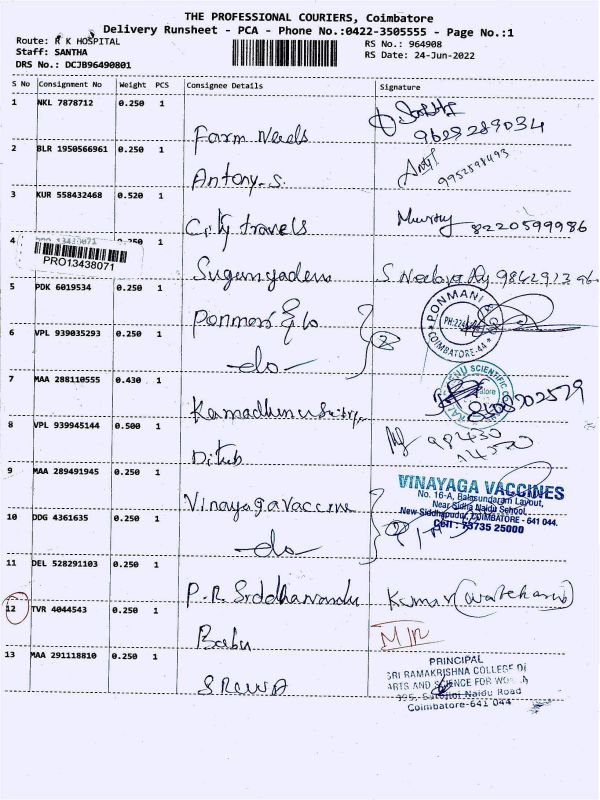 THE PROFESSIONAL COURIERS, Coimbatore
Delivery Runsheet - PCA - Phone No.:0422-3505555 - Page No.:1
Route: R K HOSPITAL
RS No.: 964908
Staff: SANTHA
RS Date: 24-Jun-2022
DRS No.: DCJB96490801
S No Consignment No Weight PCS Consignee Details Signature
1 NKL 7878712 0.250 1
Farm Needs
9629289034
2 BLR 1950566961 0.250 1
Antony.S.
9952598493
3 KUR 558432468 0.520 1
City travels
Murthy 8220599986
4
PRO13438071
5 PDK 6019534 0.250 1
Ponmani & Co
PONMANI
COIMBATORE-44
6 VPL 939035293 0.250 1
-do-
2
7 MAA 288110555 0.430 1
SCIENTIFIC
8 VPL 939945144 0.500 1
99430
9 MAA 289491945 0.250 1
Vinayaga Vaccine
VINAYAGA VACCINES
No. 16-A, Balasundaram Layout,
Near Sidha Naidu School,
New Siddhapudur, COIMBATORE - 641 044.
Cell : 73735 25000
10 DDG 4361635 0.250 1
-do-
11 DEL 528291103 0.250 1
P.R. Siddhanandu
Kumar
12 TVR 4044543 0.250 1
Babu
13 MAA 291118810 0.250 1
PRINCIPAL
SRI RAMAKRISHNA COLLEGE OF
ARTS AND SCIENCE FOR
395, Sarojini Naidu Road
Coimbatore-641 044